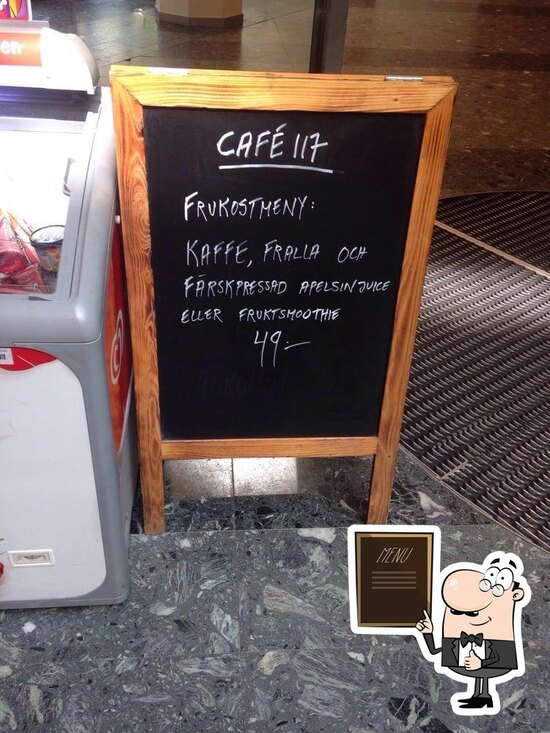 CAFÉ 117
FRUKOSTMENY:
KAFFE, FRALLA OCH
FÄRSKPRESSAD APELSINJUICE
ELLER FRUKTSMOOTHIE
49:-
MENU